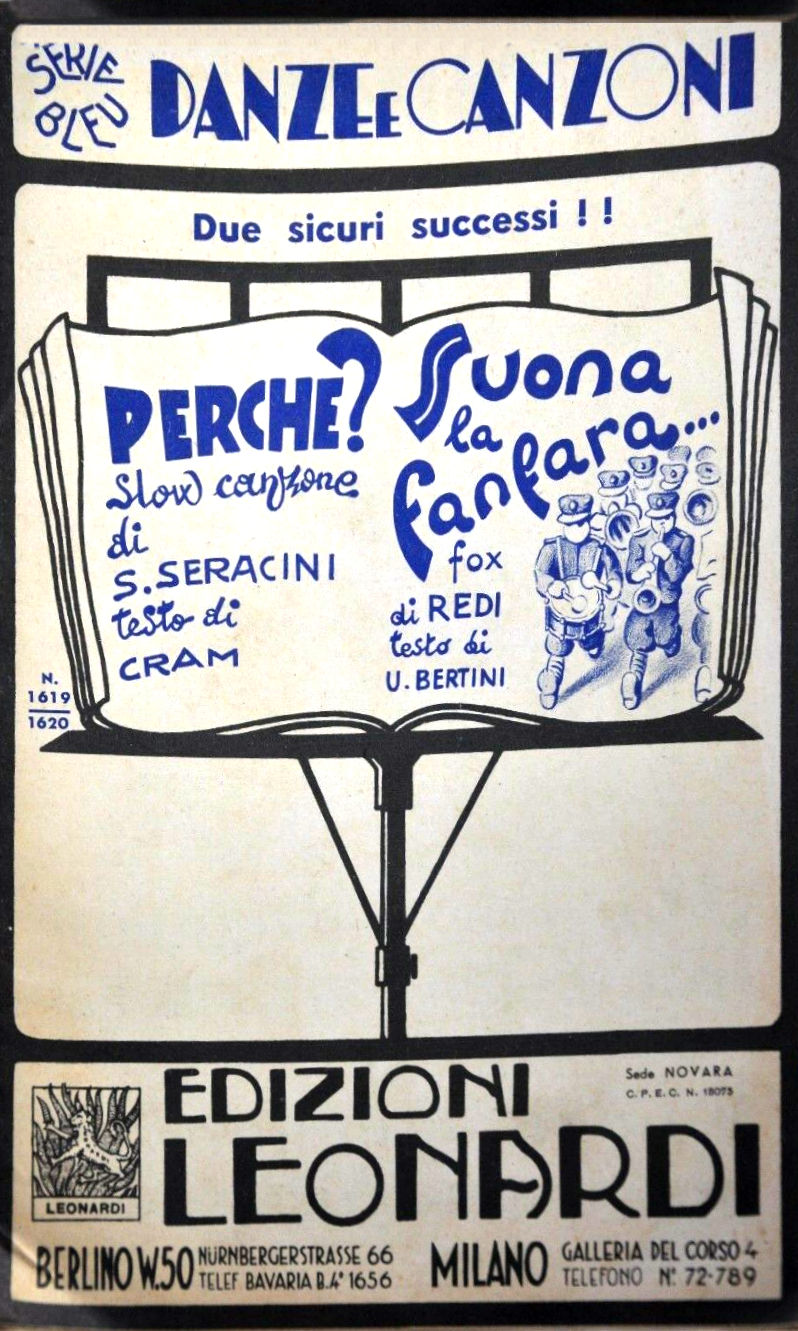 SERIE
BLEU
DANZE E CANZONI
Due sicuri successi ! !
PERCHE?
Slow canzone
di
S. SERACINI
testo di
CRAM
Suona
la
fanfara...
fox
di REDI
testo di
U. BERTINI
N.
1619
1620
EDIZIONI
LEONARDI
Sede NOVARA
C. P. E. C. N. 18073
LEONARDI
BERLINO W.50
NÜRNBERGERSTRASSE 66
TELEF BAVARIA B.4° 1656
MILANO
GALLERIA DEL CORSO 4
TELEFONO N° 72-789